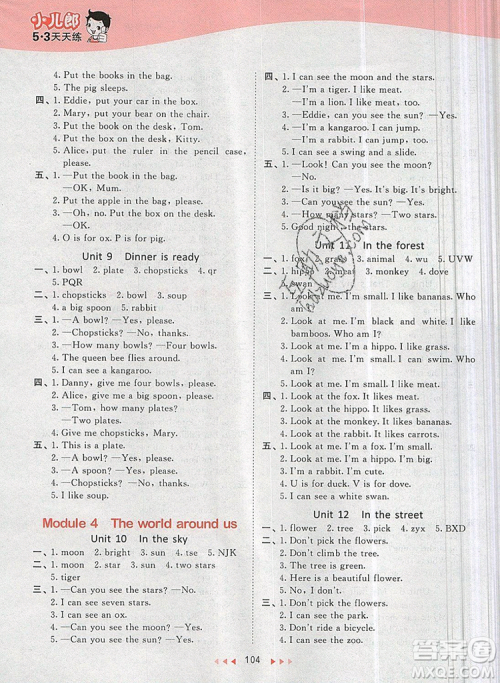 小儿郎
5·3天天练
4. Put the books in the bag.
5. The pig sleeps.
四、1. Eddie, put your car in the box.
2. Mary, put your bear on the chair.
3. Put the book on the desk, Tom.
4. Put the box on the desk, Kitty.
5. Alice, put the ruler in the pencil case, please.
五、1. —Put the book in the bag.
—OK, Mum.
2. Put the apple in the bag, please.
3. —Oh, no. Put the box on the desk.
—OK.
4. O is for ox. P is for pig.
Unit 9 Dinner is ready
一、1. bowl 2. plate 3. chopsticks 4. qr
5. PQR
二、1. chopsticks 2. bowl 3. soup
4. a big spoon 5. rabbit
三、1. —A bowl? —Yes, please.
2. —Chopsticks? —No, thanks.
3. —How many bowls? —Four bowls.
4. The queen bee flies around.
5. I can see a kangaroo.
四、1. Danny, give me four bowls, please.
2. Alice, give me a big spoon, please.
3. —Give me plates, Tom.
—How many plates? —Two plates.
4. Give me chopsticks, Mary.
五、1. This is a plate.
2. —A bowl? —Yes, please.
3. —A spoon? —Yes, please.
4. —Chopsticks? —No, thanks.
Module 4 The world around us
Unit 10 In the sky
一、1. moon 2. bright 3. sun 4. tse 5. NJK
二、1. moon 2. star 3. sun 4. two stars
5. tiger
三、1. —Can you see the stars? —No.
2. I can see seven stars.
3. —Can you see the moon? —Yes.
4. —Can you see the sun? —Yes.
5. I can see the moon and the stars.
四、1. I can see the moon and the stars.
2. —I'm a fish. I can swim.
—I'm a bird. I can fly.
3. —Eddie, can you see the sun? —Yes.
4. —I'm a kangaroo. I can jump.
—I'm a rabbit. I can jump.
5. I can see a swing and a slide.
五、1. —Look! Can you see the moon?
—No.
2. —Is it big? —Yes. It's big. It's bright.
3. —Can you see the stars? —Yes.
4. —How many stars? —Two stars.
5. Good night the stars.
Unit 11 In the forest
一、1. fox 2. grass 3. animal 4. wu 5. UVW
二、1. hippo 2. meat 3. monkey 4. dove
5. swan
三、1. Look at me. I'm small. I like bananas. Who am I?
2. Look at me. I'm black and white. I like bamboo. Who am I?
3. Look at me. I'm small. I like meat.
4. Look at me. I'm small. I can swim. Who am I?
四、1. Look at the fox. It likes meat.
2. Look at the hippo. It likes grass.
3. Look at the monkey. It likes bananas.
4. Look at the rabbit. It likes carrots.
五、1. Look at me. I'm a fox. I'm small.
2. Look at me. I'm a hippo. I'm big.
3. Look at me. I'm a rabbit. I'm cute.
4. U is for duck. V is for dove.
5. I can see a white swan.
Unit 12 In the street
一、1. flower 2. tree 3. pick 4. zyx 5. BXD
二、1. Don't pick the flowers.
2. Don't climb the tree.
3. The tree is green.
4. Don't pick the flowers.
5. I can see a bicycle.
三、1. Don't pick the flowers.
2. I can see a fox.
3. I can ride a bicycle.
4. I can see the zoo.
104
答案圈
MXQE.COM